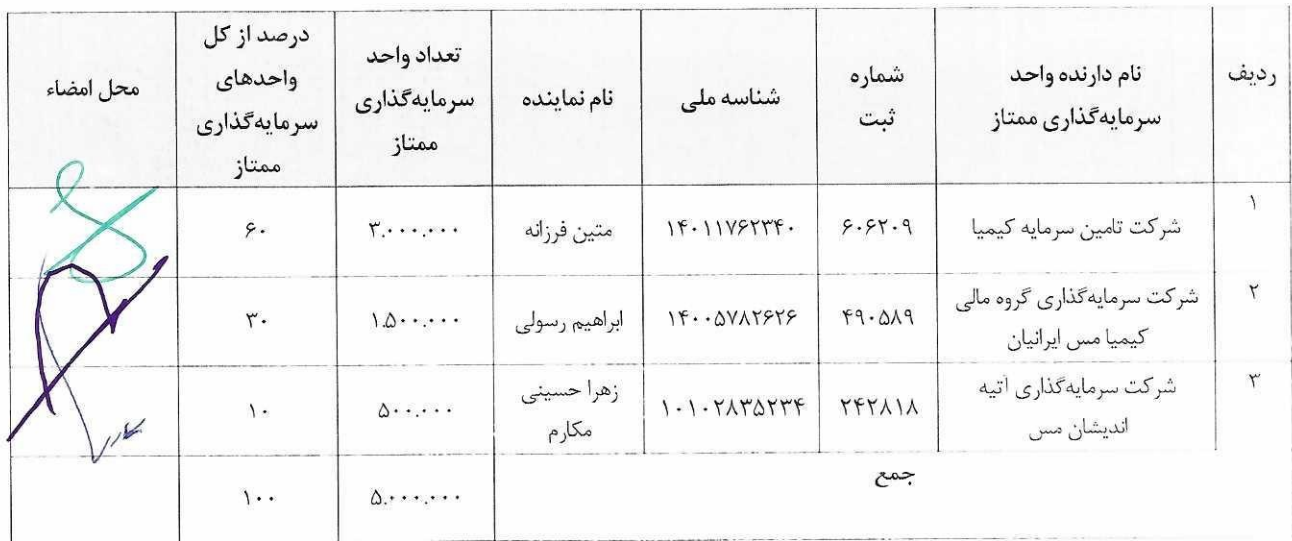 ردیف
نام دارنده واحد
سرمایه‌گذاری ممتاز
شماره
ثبت
شناسه ملی
نام نماینده
تعداد واحد
سرمایه‌گذاری
ممتاز
درصد از کل
واحدهای
سرمایه‌گذاری
ممتاز
محل امضاء
۱
شرکت تامین سرمایه کیمیا
۶۰۶۲۰۹
۱۴۰۱۱۷۶۲۳۴۰
متین فرزانه
۳.۰۰۰.۰۰۰
۶۰
۲
شرکت سرمایه‌گذاری گروه مالی
کیمیا مس ایرانیان
۴۹۰۵۸۹
۱۴۰۰۵۷۸۲۶۲۶
ابراهیم رسولی
۱.۵۰۰.۰۰۰
۳۰
۳
شرکت سرمایه‌گذاری آتیه
اندیشان مس
۲۴۲۸۱۸
۱۰۱۰۲۸۳۵۲۳۴
زهرا حسینی
مکارم
۵۰۰.۰۰۰
۱۰
جمع
۵.۰۰۰.۰۰۰
۱۰۰